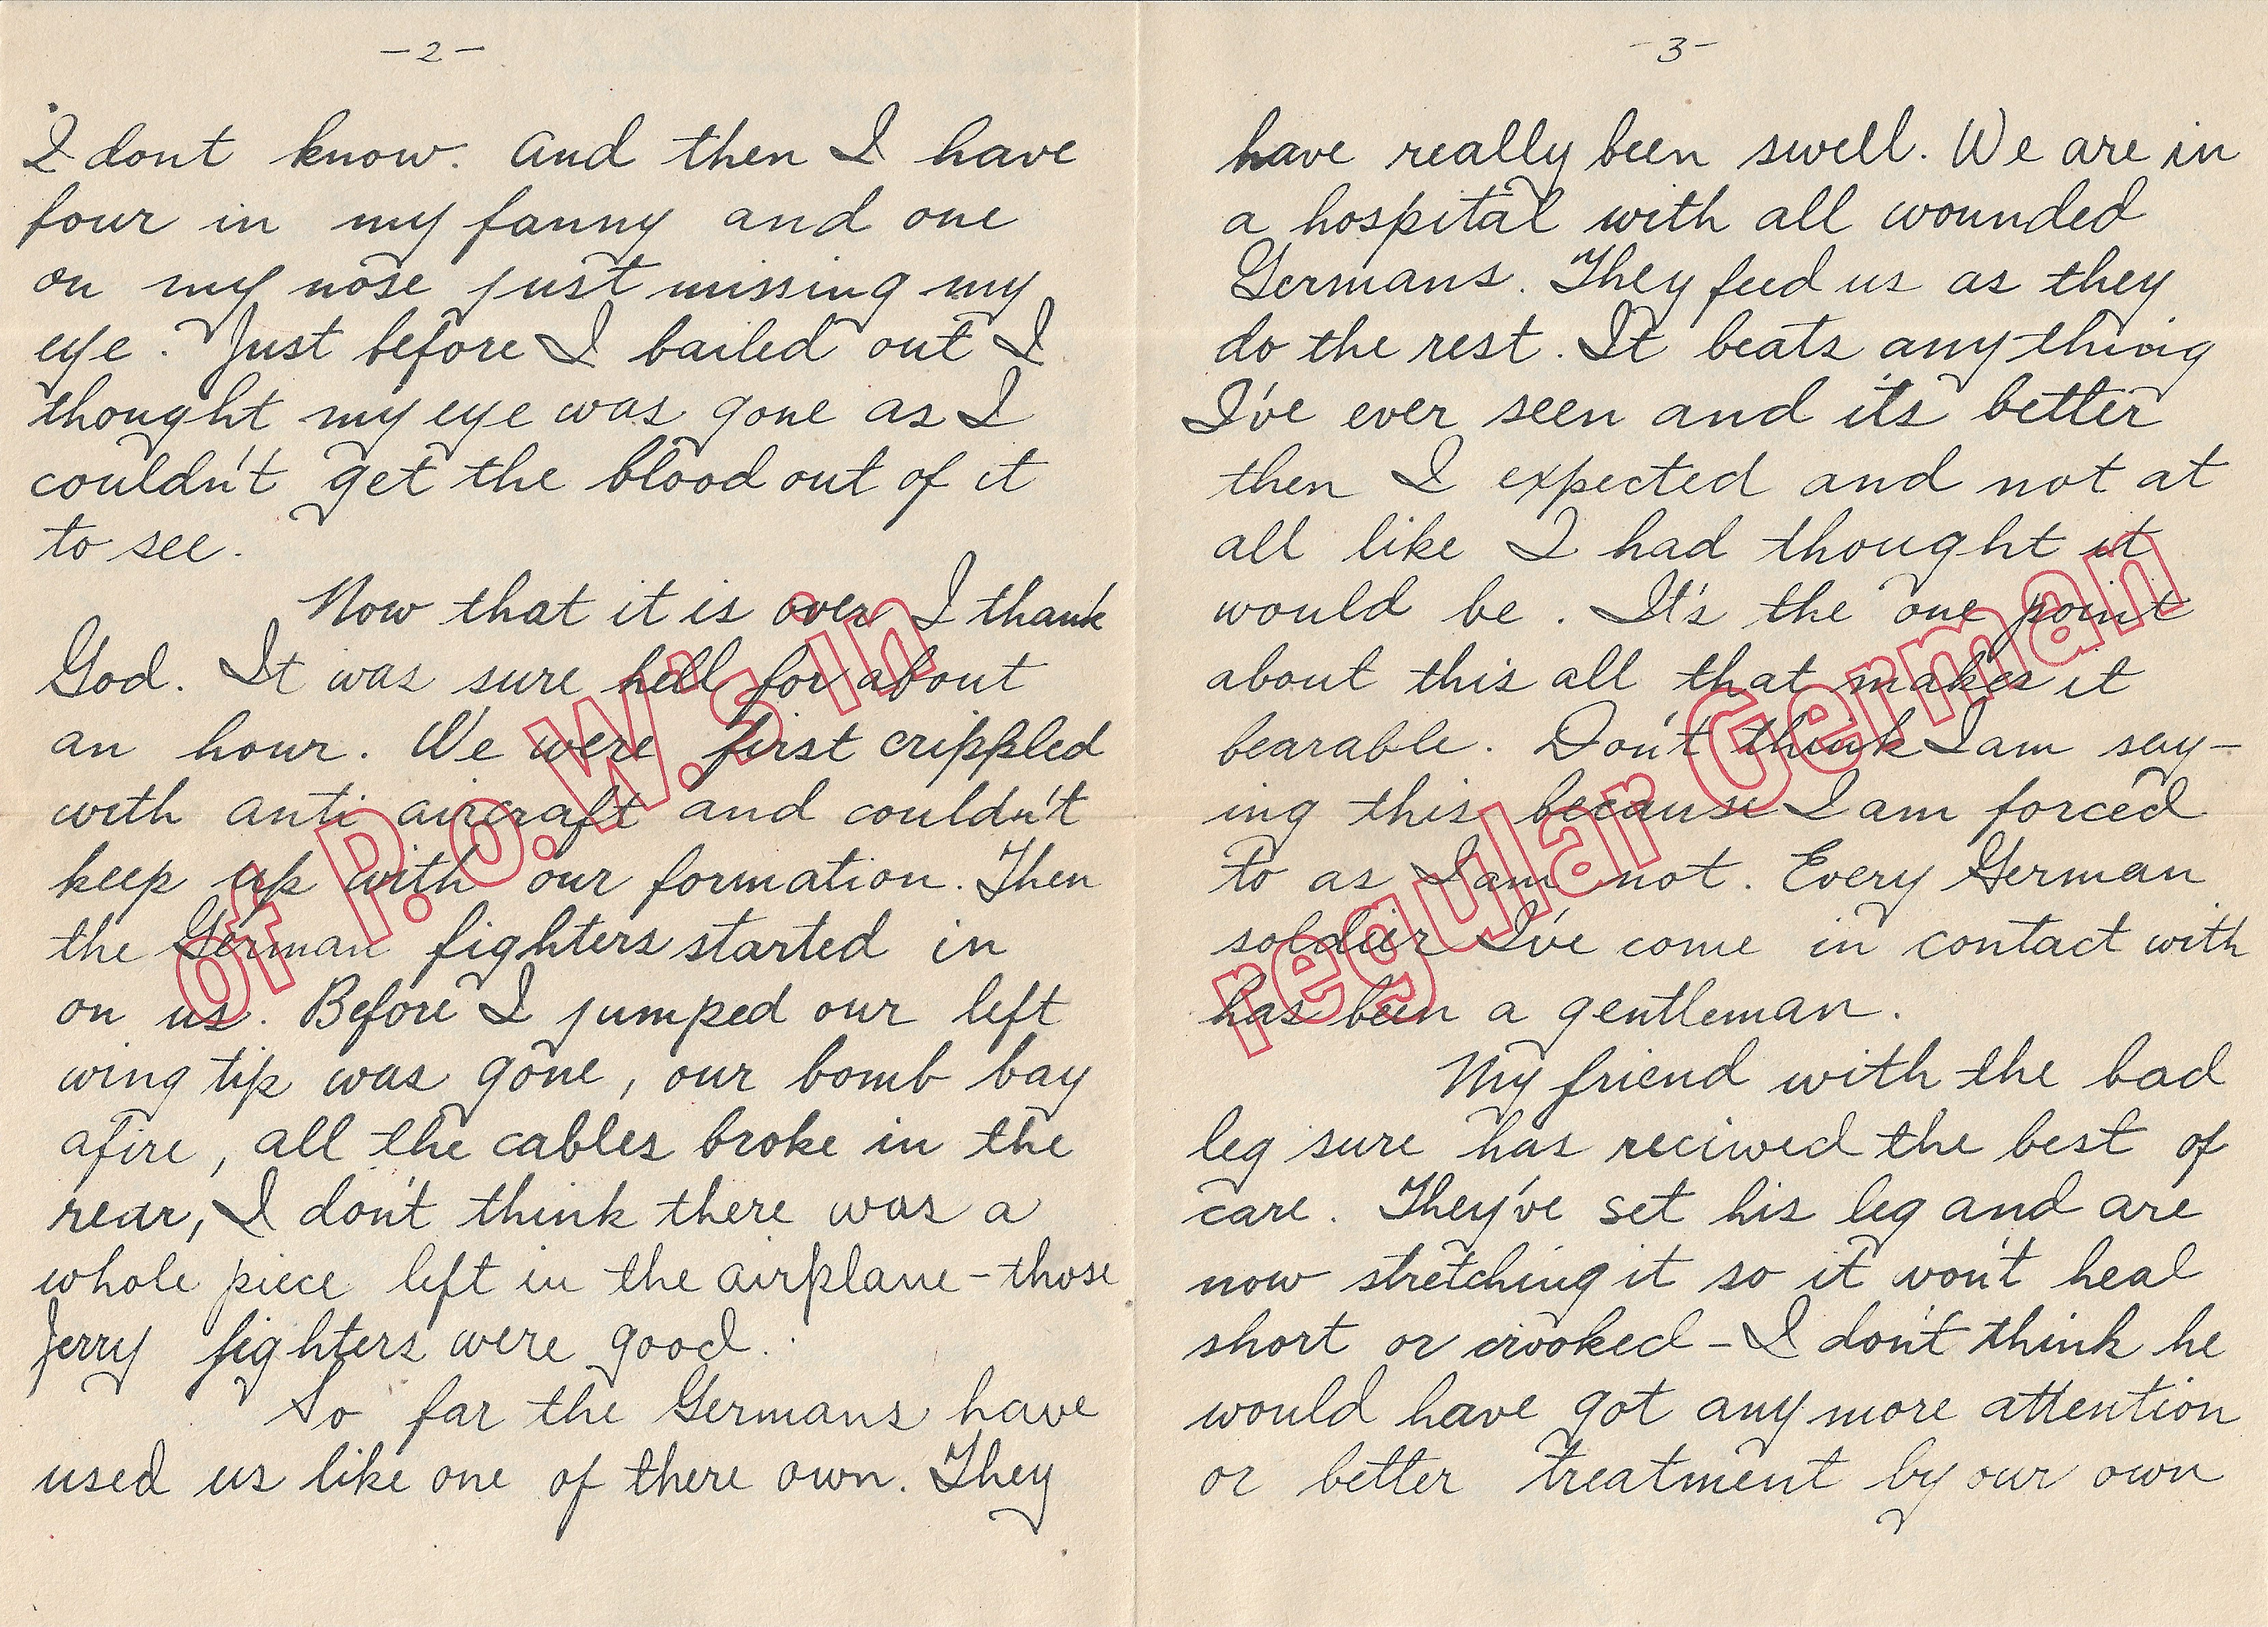 -2-
I dont know. And then I have
four in my fanny and one
on my nose just missing my
eye. Just before I bailed out I
thought my eye was gone as I
couldn't get the blood out of it
to see.
Now that it is over I thank
God. It was sure hell for about
an hour. We were first crippled
with anti aircraft and couldn't
keep up with our formation. Then
the German fighters started in
on us. Before I jumped our left
wing tip was gone, our bomb bay
afire, all the cables broke in the
rear, I don't think there was a
whole piece left in the airplane - those
Jerry fighters were good.
So far the Germans have
used us like one of there own. They
of P.O.W.'s in
-3-
have really been swell. We are in
a hospital with all wounded
Germans. They feed us as they
do the rest. It beats anything
I've ever seen and it's better
then I expected and not at
all like I had thought it
would be. It's the one point
about this all that makes it
bearable. Don't think I am say-
ing this because I am forced
to as I am not. Every German
soldier I've come in contact with
has been a gentleman.
My friend with the bad
leg sure has recived the best of
care. They've set his leg and are
now stretching it so it won't heal
short or crooked - I don't think he
would have got any more attention
or better treatment by our own
regular German